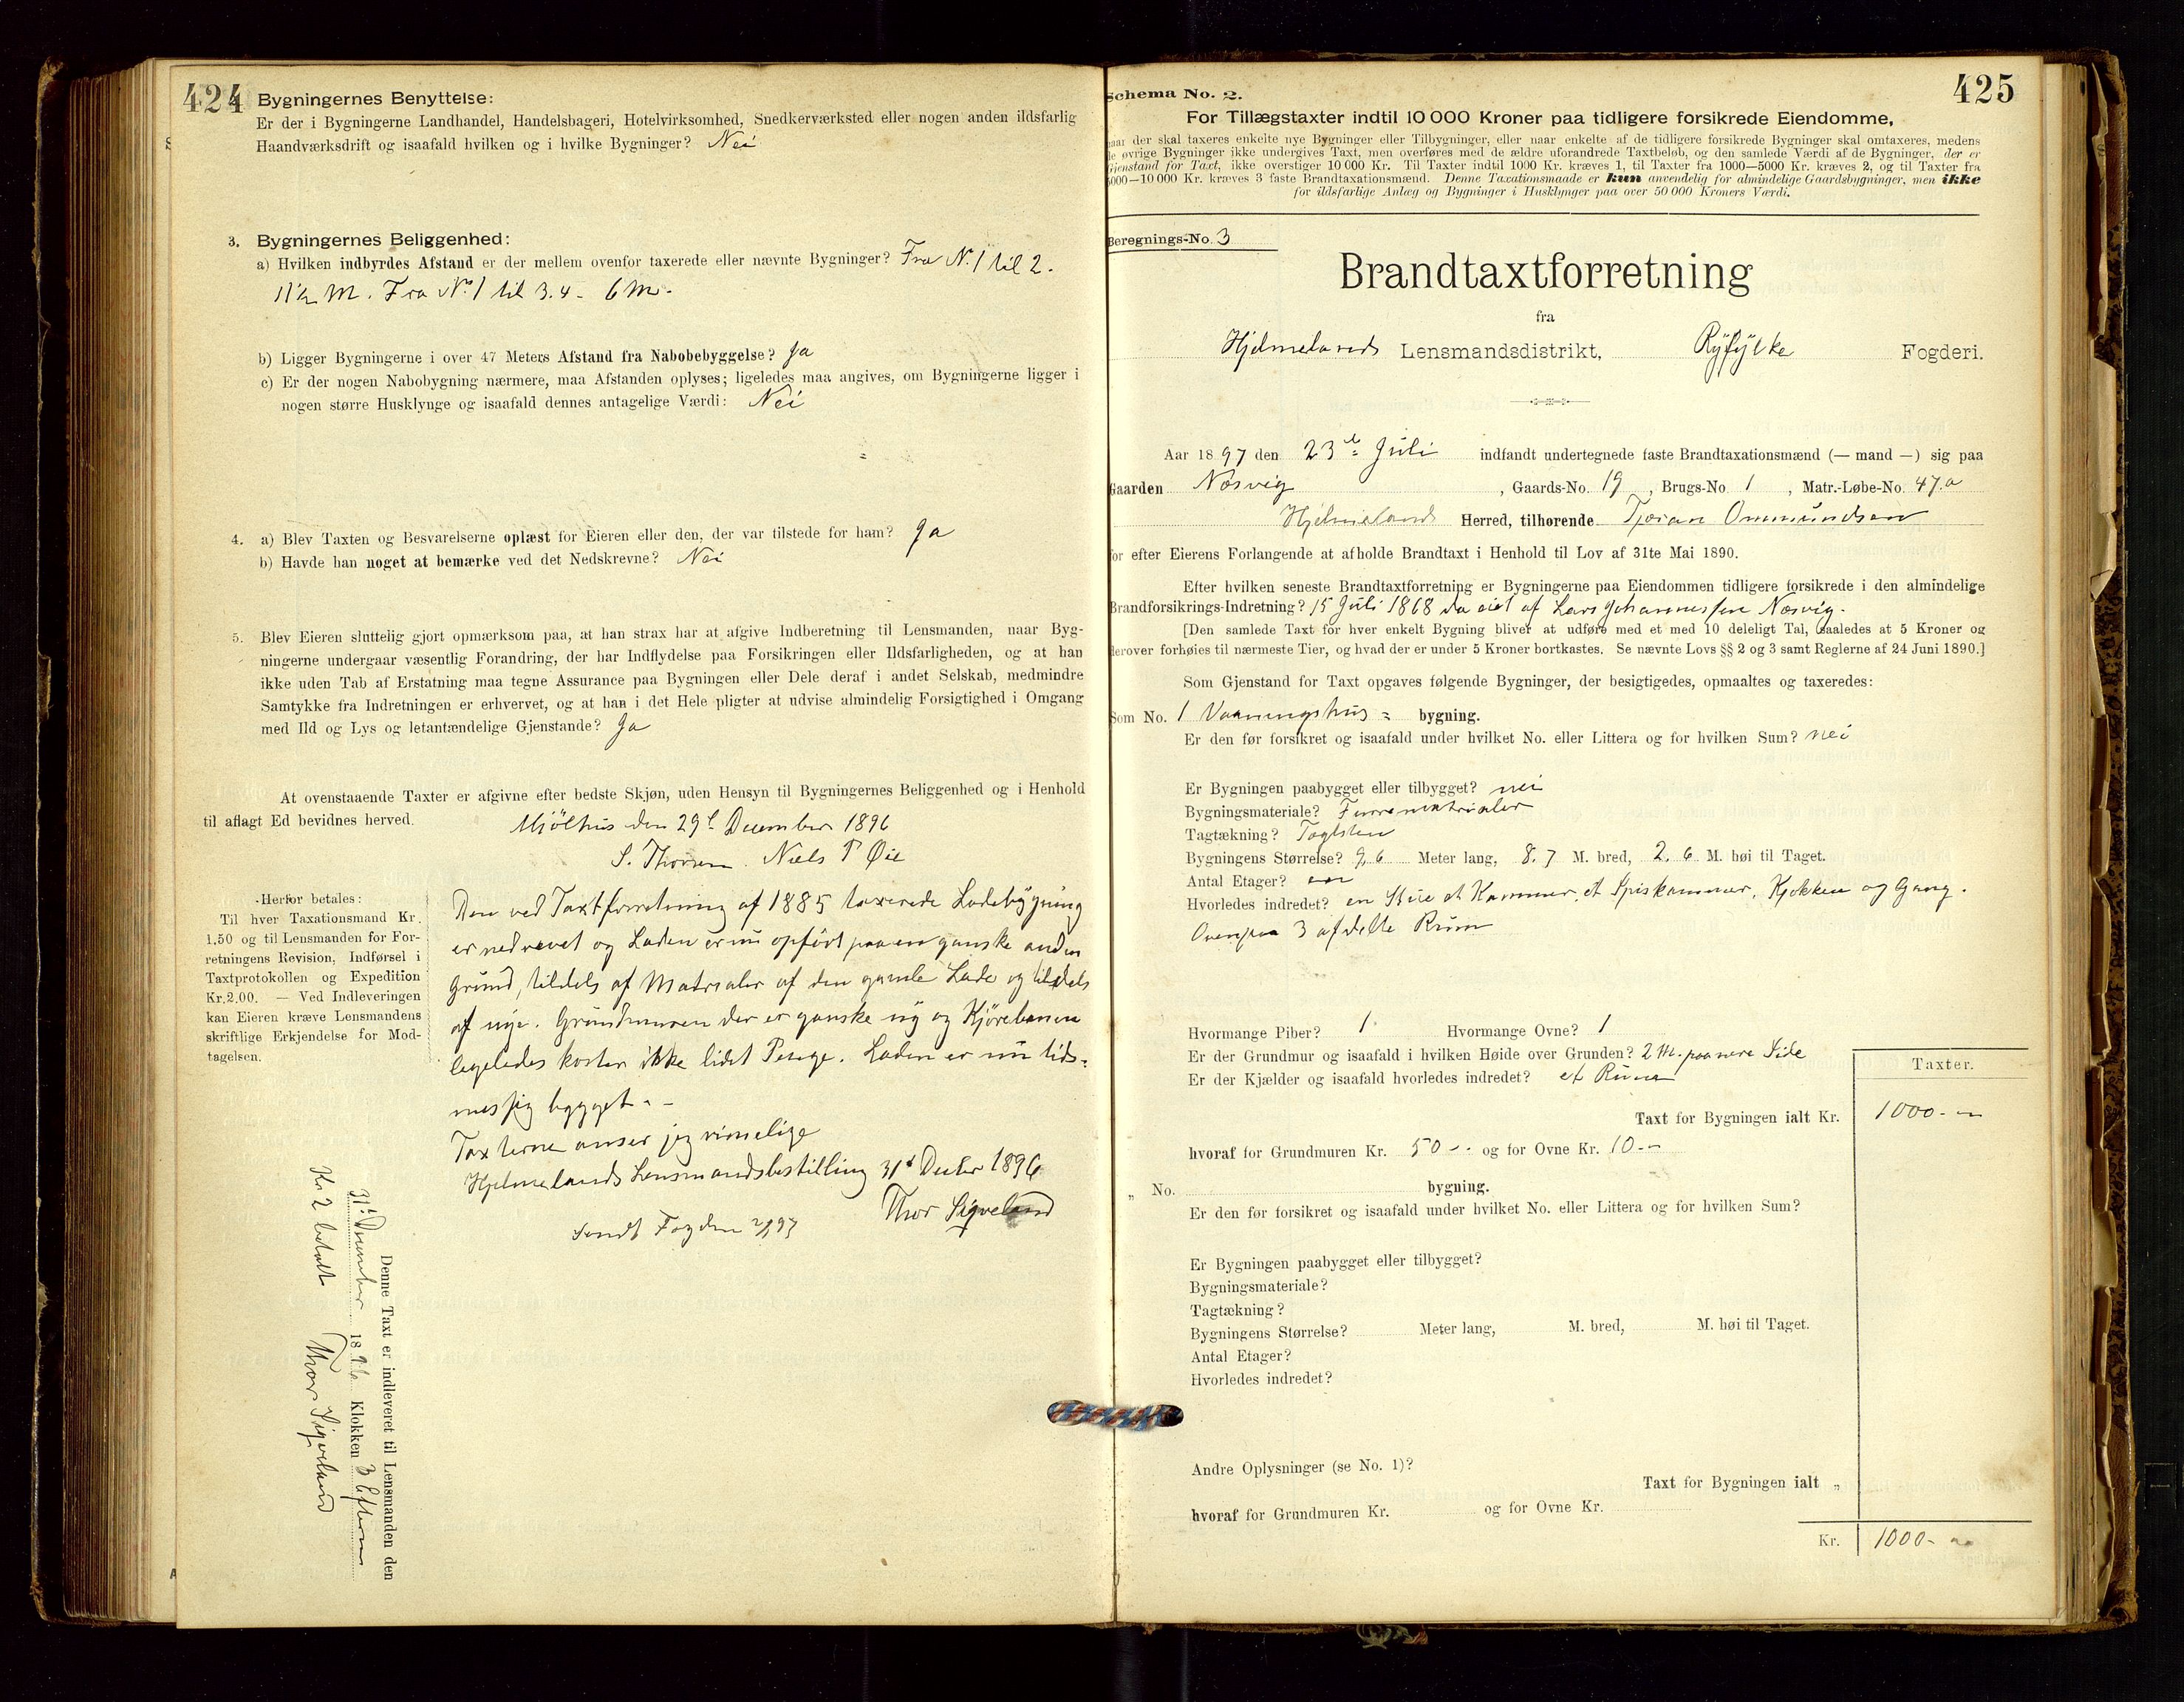 424
Bygningernes Benyttelse:
Er der i Bygningerne Landhandel, Handelsbageri, Hotelvirksomhed, Snedkerværksted eller nogen anden ildsfarlig
Haandværksdrift og isaafald hvilken og i hvilke Bygninger? Nei
3. Bygningernes Beliggenhed:
a) Hvilken indbyrdes Afstand er der mellem ovenfor taxerede eller nævnte Bygninger? Fra N. 1 til 2.
11½ M. Fra No 1 til 3.4 - 6 M.
b) Ligger Bygningerne i over 47 Meters Afstand fra Nabobebyggelse? Ja
c) Er der nogen Nabobygning nærmere, maa Afstanden oplyses; ligeledes maa angives, om Bygningerne ligger i
nogen større Husklynge og isaafald dennes antagelige Værdi: Nei
4. a) Blev Taxten og Besvarelserne oplæst for Eieren eller den, der var tilstede for ham? Ja
b) Havde han noget at bemærke ved det Nedskrevne? Nei
5. Blev Eieren sluttelig gjort opmærksom paa, at han strax har at afgive Indberetning til Lensmanden, naar Byg-
ningerne undergaar væsentlig Forandring, der har Indflydelse paa Forsikringen eller Ildsfarligheden, og at han
ikke uden Tab af Erstatning maa tegne Assurance paa Bygningen eller Dele deraf i andet Selskab, medmindre
Samtykke fra Indretningen er erhvervet, og at han i det Hele pligter at udvise almindelig Forsigtighed i Omgang
med Ild og Lys og letantændelige Gjenstande? Ja
At ovenstaaende Taxter er afgivne efter bedste Skjøn, uden Hensyn til Bygningernes Beliggenhed og i Henhold
til aflagt Ed bevidnes herved.
Mjölhus den 29d December 1896
S. Thorsen. Niels P Øie
Herfor betales:
Til hver Taxationsmand Kr.
1.50 og til Lensmanden for For-
retningens Revision, Indførsel i
Taxtprotokollen og Expedition
Kr.2.00. — Ved Indleveringen
kan Eieren kræve Lensmandens
skriftlige Erkjendelse for Mod-
tagelsen.
Den ved Taxtforretning af 1885 taxerede Ladebygning
er nedrevet og Laden er nu opført paa en ganske anden
Grund, tildels af Matrialer af den gamle Lade og tildels
af nye. Grundmuren der er ganske ny og Kjörebanen
ligeledes koster ikke lidet Penge. Laden er nu tids-
messig bygget. -
Taxterne anser jeg rimelige
Hjelmelands Lensmandsbestilling 31d Decbr 1896
Thor Sigveland
Sendt Fogden 2/1 97
Denne Taxt er indleveret til Lensmanden den
31d December 1896 Klokken 3 Efterm
Kr 2 betalt Thor Sigveland
425
Schema No. 2.
For Tillægstaxter indtil 10 000 Kroner paa tidligere forsikrede Eiendomme,
naar der skal taxeres enkelte nye Bygninger eller Tilbygninger, eller naar enkelte af de tidligere forsikrede Bygninger skal omtaxeres, medens
de øvrige Bygninger ikke undergives Taxt, men overføres med de ældre uforandrede Taxtbeløb, og den samlede Værdi af de Bygninger, der er
Gjenstand for Taxt, ikke overstiger 10 000 Kr. Til Taxter indtil 1000 Kr. kræves 1, til Taxter fra 1000—5000 Kr. kræves 2, og til Taxter fra
5000—10 000 Kr. kræves 3 faste Brandtaxationsmænd. Denne Taxationsmaade er kun anvendelig for almindelige Gaardsbygninger, men ikke
for ildsfarlige Anlæg og Bygninger i Husklynger paa over 50 000 Kroners Værdi.
Beregnings-No. 3
Brandtaxtforretning
fra
Hjelmelands Lensmandsdistrikt, Ryfylke Fogderi.
Aar 1897 den 23d Juli indfandt undertegnede faste Brandtaxationsmænd (— mand —) sig paa
Gaarden Nosvig, Gaards-No. 19, Brugs-No 1, Matr.-Løbe-No. 47.a
Hjelmelands Herred, tilhørende Tjøran Ommundsen
for efter Eierens Forlangende at afholde Brandtaxt i Henhold til Lov af 31te Mai 1890.
Efter hvilken seneste Brandtaxtforretning er Bygningerne paa Eiendommen tidligere forsikrede i den almindelige
Brandforsikrings-Indretning? 15 Juli 1868 da eiet af Lars Johannessen Nosvig.
[Den samlede Taxt for hver enkelt Bygning bliver at udføre med et med 10 deleligt Tal, saaledes at 5 Kroner og
derover forhøies til nærmeste Tier, og hvad der er under 5 Kroner bortkastes. Se nævnte Lovs §§ 2 og 3 samt Reglerne af 24 Juni 1890.]
Som Gjenstand for Taxt opgaves følgende Bygninger, der besigtigedes, opmaaltes og taxeredes:
Som No. 1 Vaaningshus= bygning.
Er den før forsikret og isaafald under hvilket No. eller Littera og for hvilken Sum? nei
Er Bygningen paabygget eller tilbygget? nei
Bygningsmateriale? Furrematrialer
Tagtækning? Taglsten
Bygningens Størrelse? 9,6 Meter lang, 8.7 M. bred, 2.6 M. høi til Taget.
Antal Etager? en
Hvorledes indredet? en Stue et Kammer, et Spiskammer, Kjøkken og Gang.
Ovenpaa 3 afdelte Rum
Hvormange Piber? 1. Hvormange Ovne? 1
Er der Grundmur og isaafald i hvilken Høide over Grunden? 2 M. paa nere Side
Er der Kjælder og isaafald hvorledes indredet? et Rum
Taxter.
Taxt for Bygningen ialt Kr. 1000.-
hvoraf for Grundmuren Kr. 50 -. og for Ovne Kr. 10.-
„ No. bygning.
Er den før forsikret og isaafald under hvilket No. eller Littera og for hvilken Sum?
Er Bygningen paabygget eller tilbygget?
Bygningsmateriale?
Tagtækning?
Bygningens Størrelse? Meter lang, M. bred, M. høi til Taget.
Antal Etager?
Hvorledes indredet?
Andre Oplysninger (se No. 1)?
Taxt for Bygningen ialt „
hvoraf for Grundmuren Kr. og for Ovne Kr.
Kr. 1000-